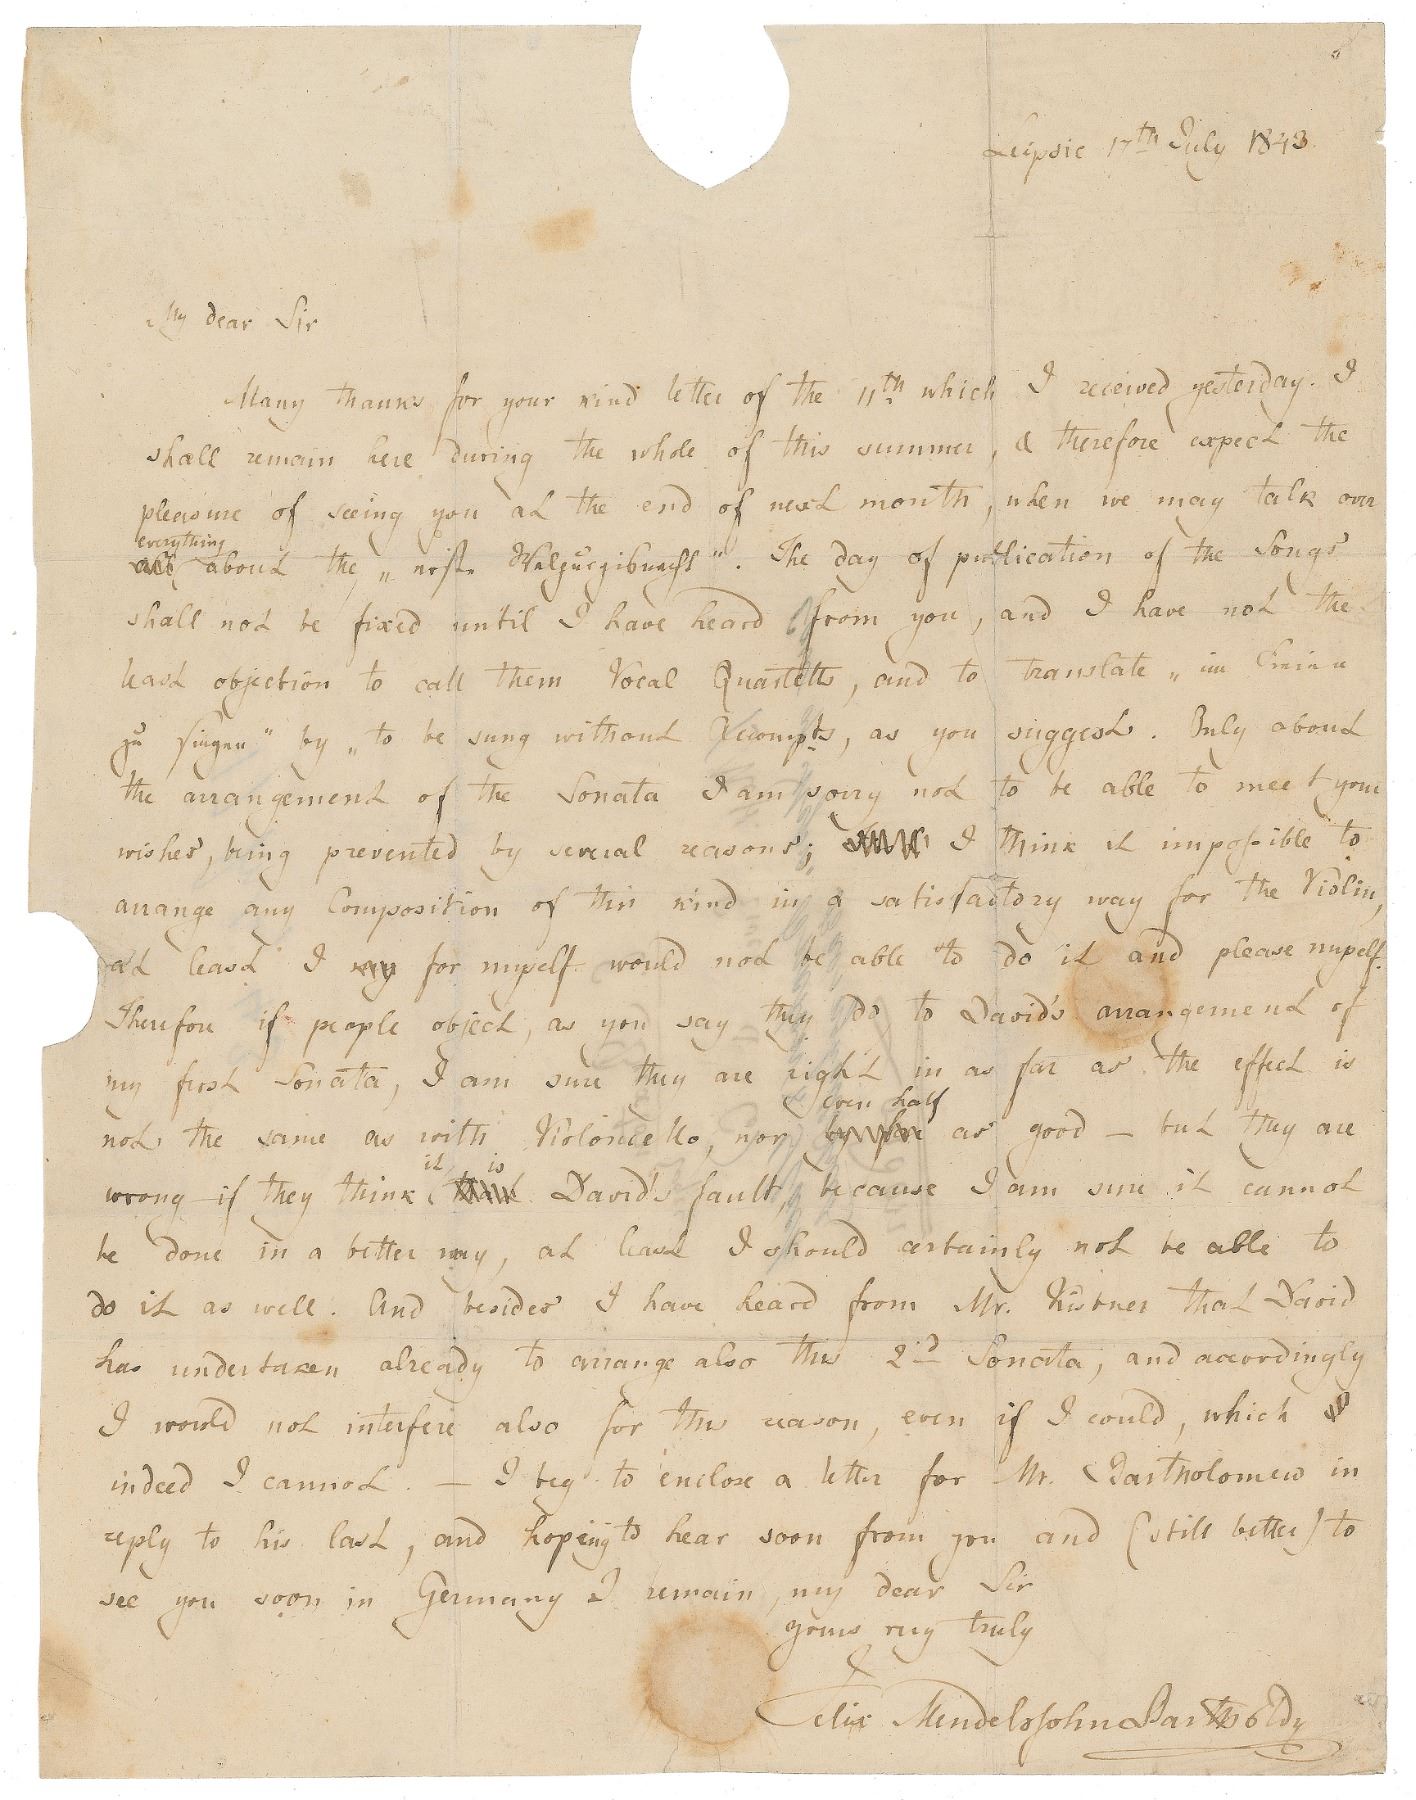 Leipsic 17th July 1843
My dear Sir
Many thanks for your kind letter of the 11th which I received yesterday. I
shall remain here during the whole of this summer, & therefore expect the
pleasure of seeing you at the end of next month, when we may talk over
everything
all about the „erste Walpurgisnacht". The day of publication of the Songs
shall not be fixed until I have heard from you, and I have not the
least objection to call them Vocal Quartetts, and to translate „im Freien
zu singen" by „to be sung without Accompts, as you suggest. Only about
the arrangement of the Sonata I am sorry not to be able to meet your
wishes, being prevented by several reasons; I think it impossible to
arrange any Composition of this kind in a satisfactory way for the Violin,
at least I my for myself would not be able to do it and please myself.
Therefore if people object, as you say they do to David's arrangement of
my first Sonata, I am sure they are right in as far as the effect is
even half
not the same as with Violoncello, nor by far as good — but they are
it is
wrong if they think David's fault, because I am sure it cannot
be done in a better way, at least I should certainly not be able to
do it as well. And besides I have heard from Mr. Kistner that David
has undertaken already to arrange also this 2d Sonata, and accordingly
I would not interfere also for this reason, even if I could, which
indeed I cannot. — I beg to enclose a letter for Mr. Bartholomew in
reply to his last, and hoping to hear soon from you and (still better) to
see you soon in Germany I remain, my dear Sir
yours very truly
Felix Mendelssohn Bartholdy